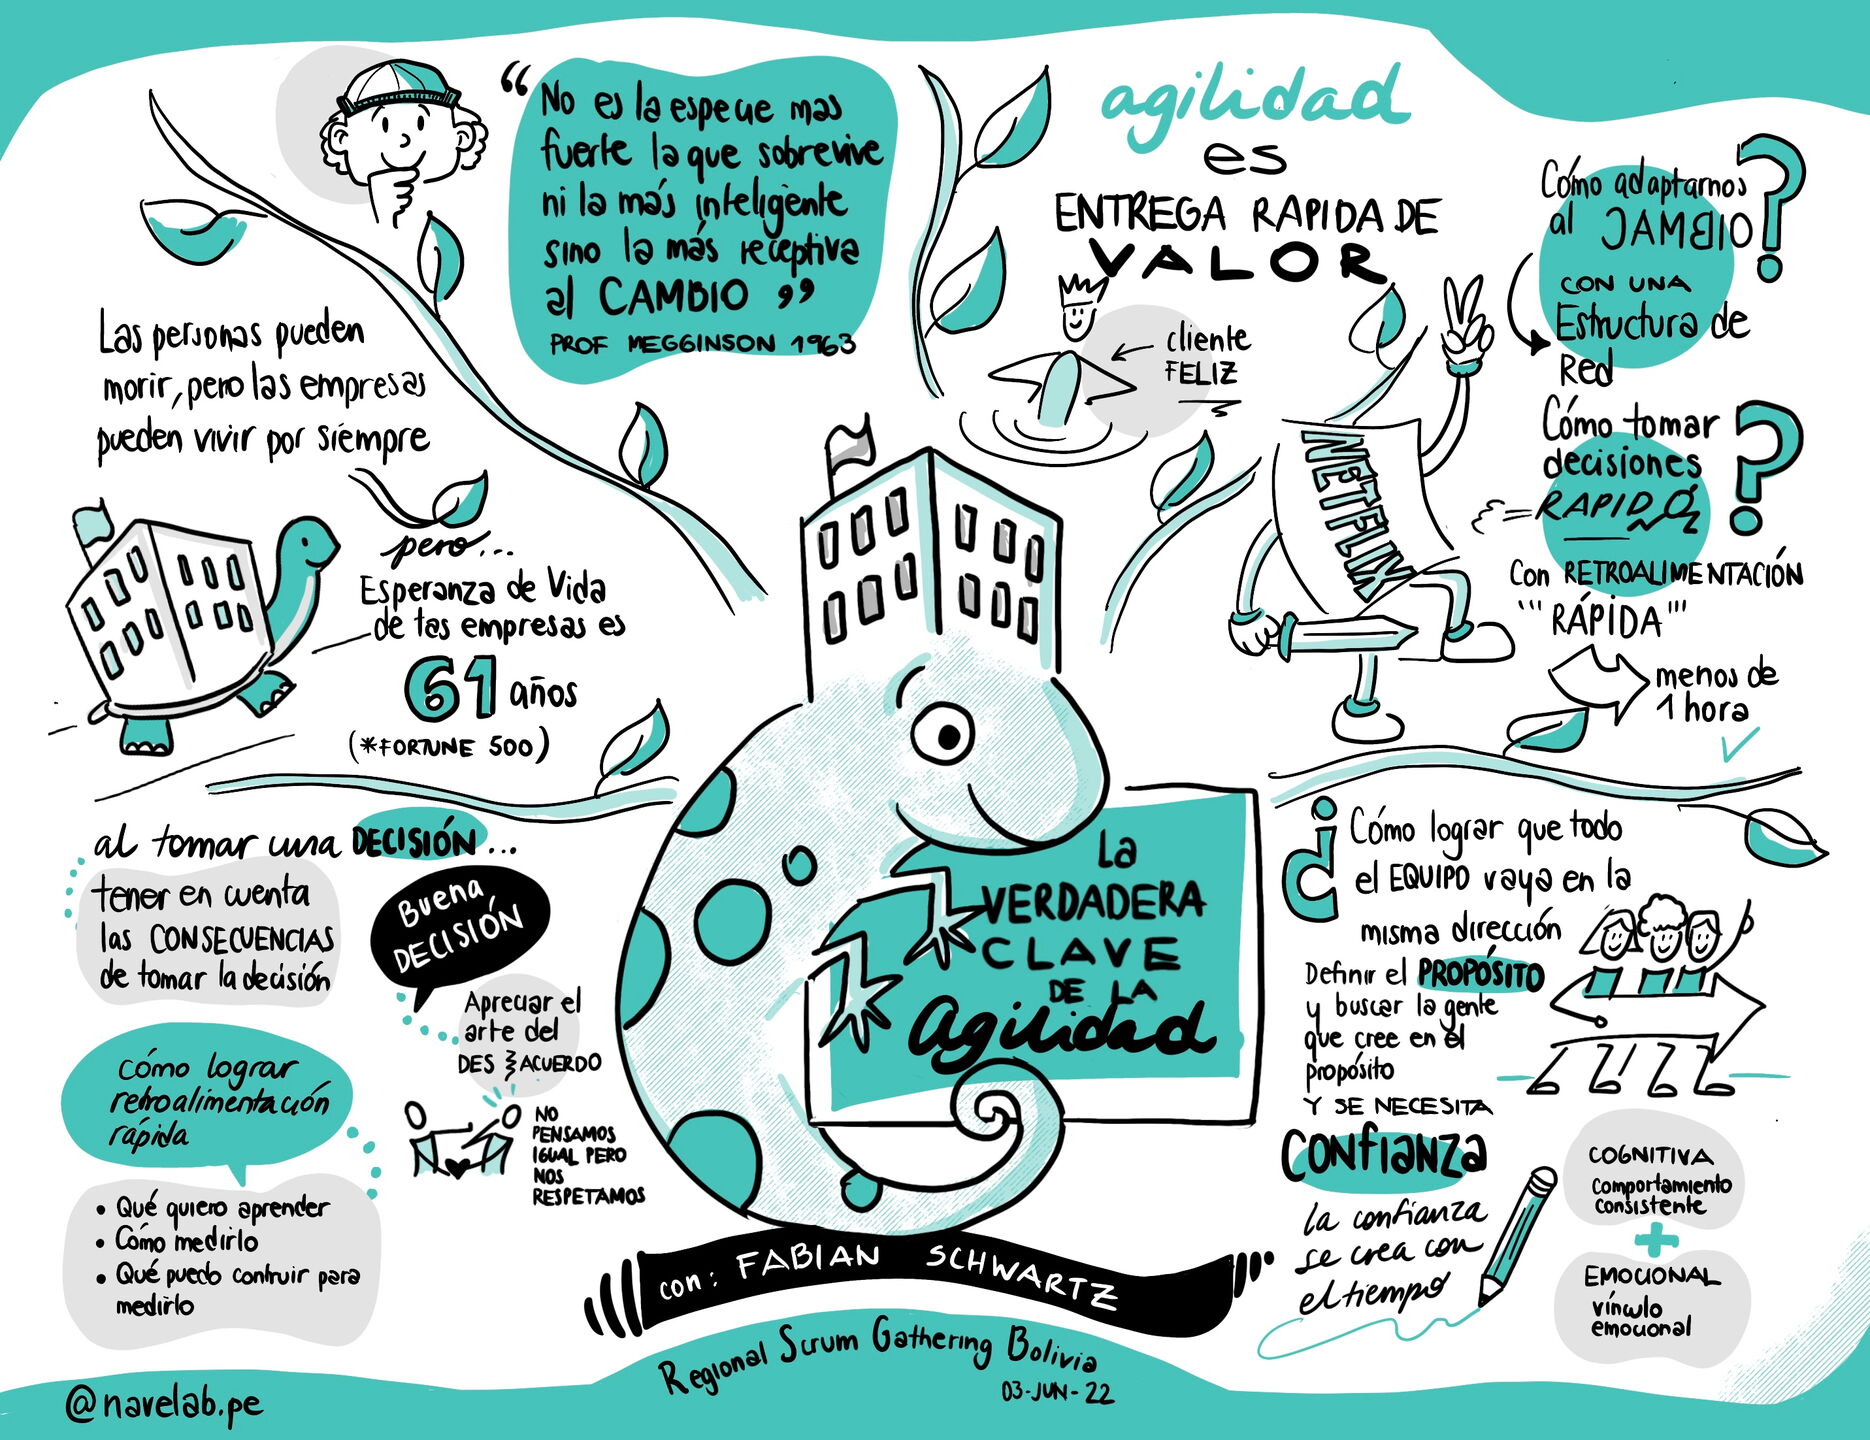 “No es la especie mas
fuerte la que sobrevive
ni la más inteligente
sino la más receptiva
al CAMBIO”
PROF MEGGINSON 1963
Las personas pueden
morir, pero las empresas
pueden vivir por siempre
pero...
Esperanza de Vida
de las empresas es
61 años
(*FORTUNE 500)
agilidad
es
ENTREGA RAPIDA DE
VALOR
cliente
FELIZ
NETFLIX
Cómo adaptarnos
al CAMBIO?
CON UNA
Estructura de
Red
Cómo tomar
decisiones
RAPIDO?
Con RETROALIMENTACIÓN
"'RÁPIDA"'
menos de
1 hora
al tomar una DECISIÓN...
tener en cuenta
las CONSECUENCIAS
de tomar la decisión
Buena
DECISIÓN
Apreciar el
arte del
DES ACUERDO
NO
PENSAMOS
IGUAL PERO
NOS
RESPETAMOS
cómo lograr
retroalimentación
rápida
• Qué quiero aprender
• Cómo medirlo
• Qué puedo contruir para
medirlo
La
VERDADERA
CLAVE
DE LA
Agilidad
con: FABIAN SCHWARTZ
Regional Scrum Gathering Bolivia
03-JUN-22
¿Cómo lograr que todo
el EQUIPO vaya en la
misma dirección
Definir el PROPÓSITO
y buscar la gente
que cree en el
propósito
Y SE NECESITA
CONfIANZA
la confianza
se crea con
el tiempo
COGNITIVA
comportamiento
consistente
+
EMOCIONAL
vínculo
emocional
@navelab.pe